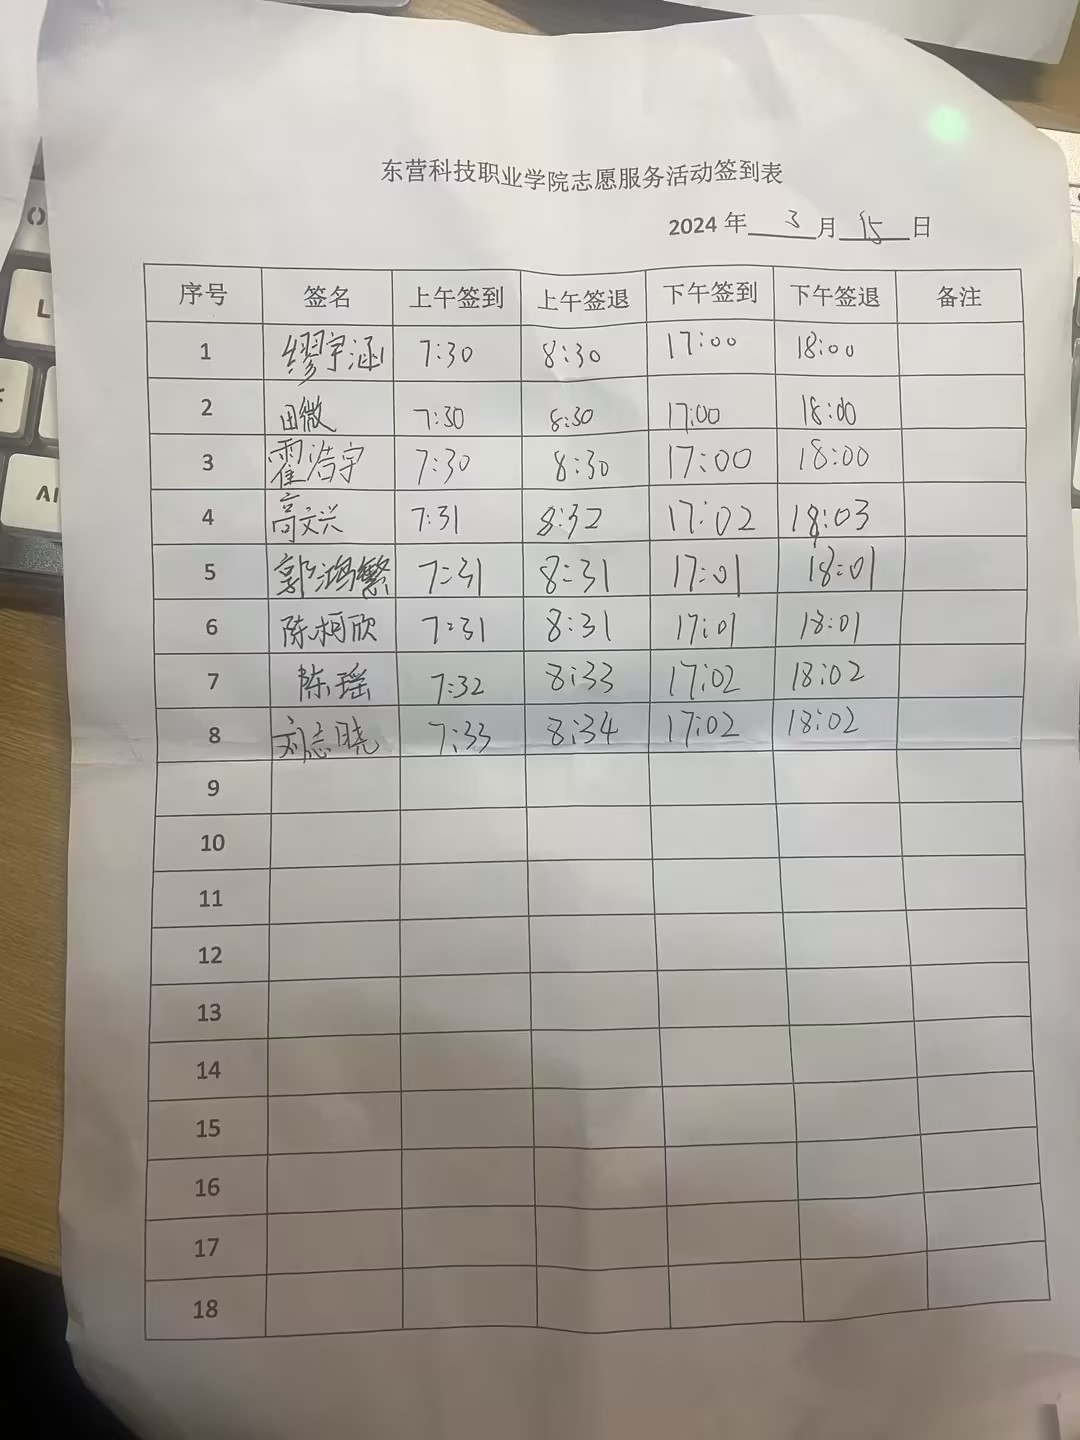 东营科技职业学院志愿服务活动签到表
2024 年 3 月 15 日
序号 签名 上午签到 上午签退 下午签到 下午签退 备注
1 缪宇涵 7:30 8:30 17:00 18:00
2 田微 7:30 8:30 17:00 18:00
3 霍浩宇 7:30 8:30 17:00 18:00
4 高文兴 7:31 8:32 17:02 18:03
5 郭鸿繁 7:31 8:31 17:01 18:01
6 陈柯欣 7:31 8:31 17:01 18:01
7 陈瑶 7:32 8:33 17:02 18:02
8 刘志晓 7:33 8:34 17:02 18:02
9
10
11
12
13
14
15
16
17
18